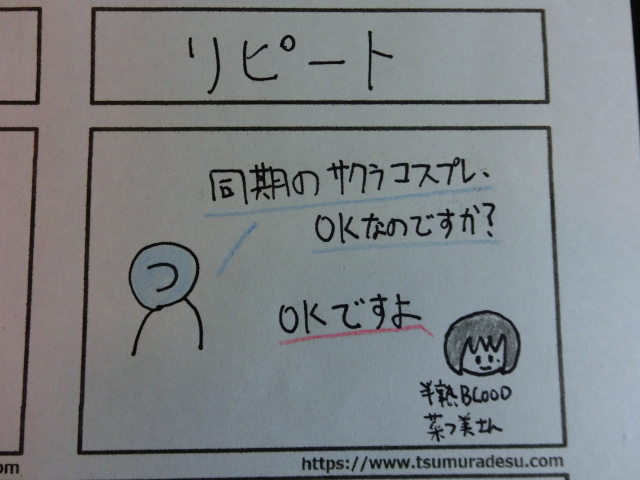 リピート
同期のサクラコスプレ、
OKなのですか?
つ
OKですよ
半熟BLOOD
菜つ美さん
https://www.tsumuradesu.com
om
om